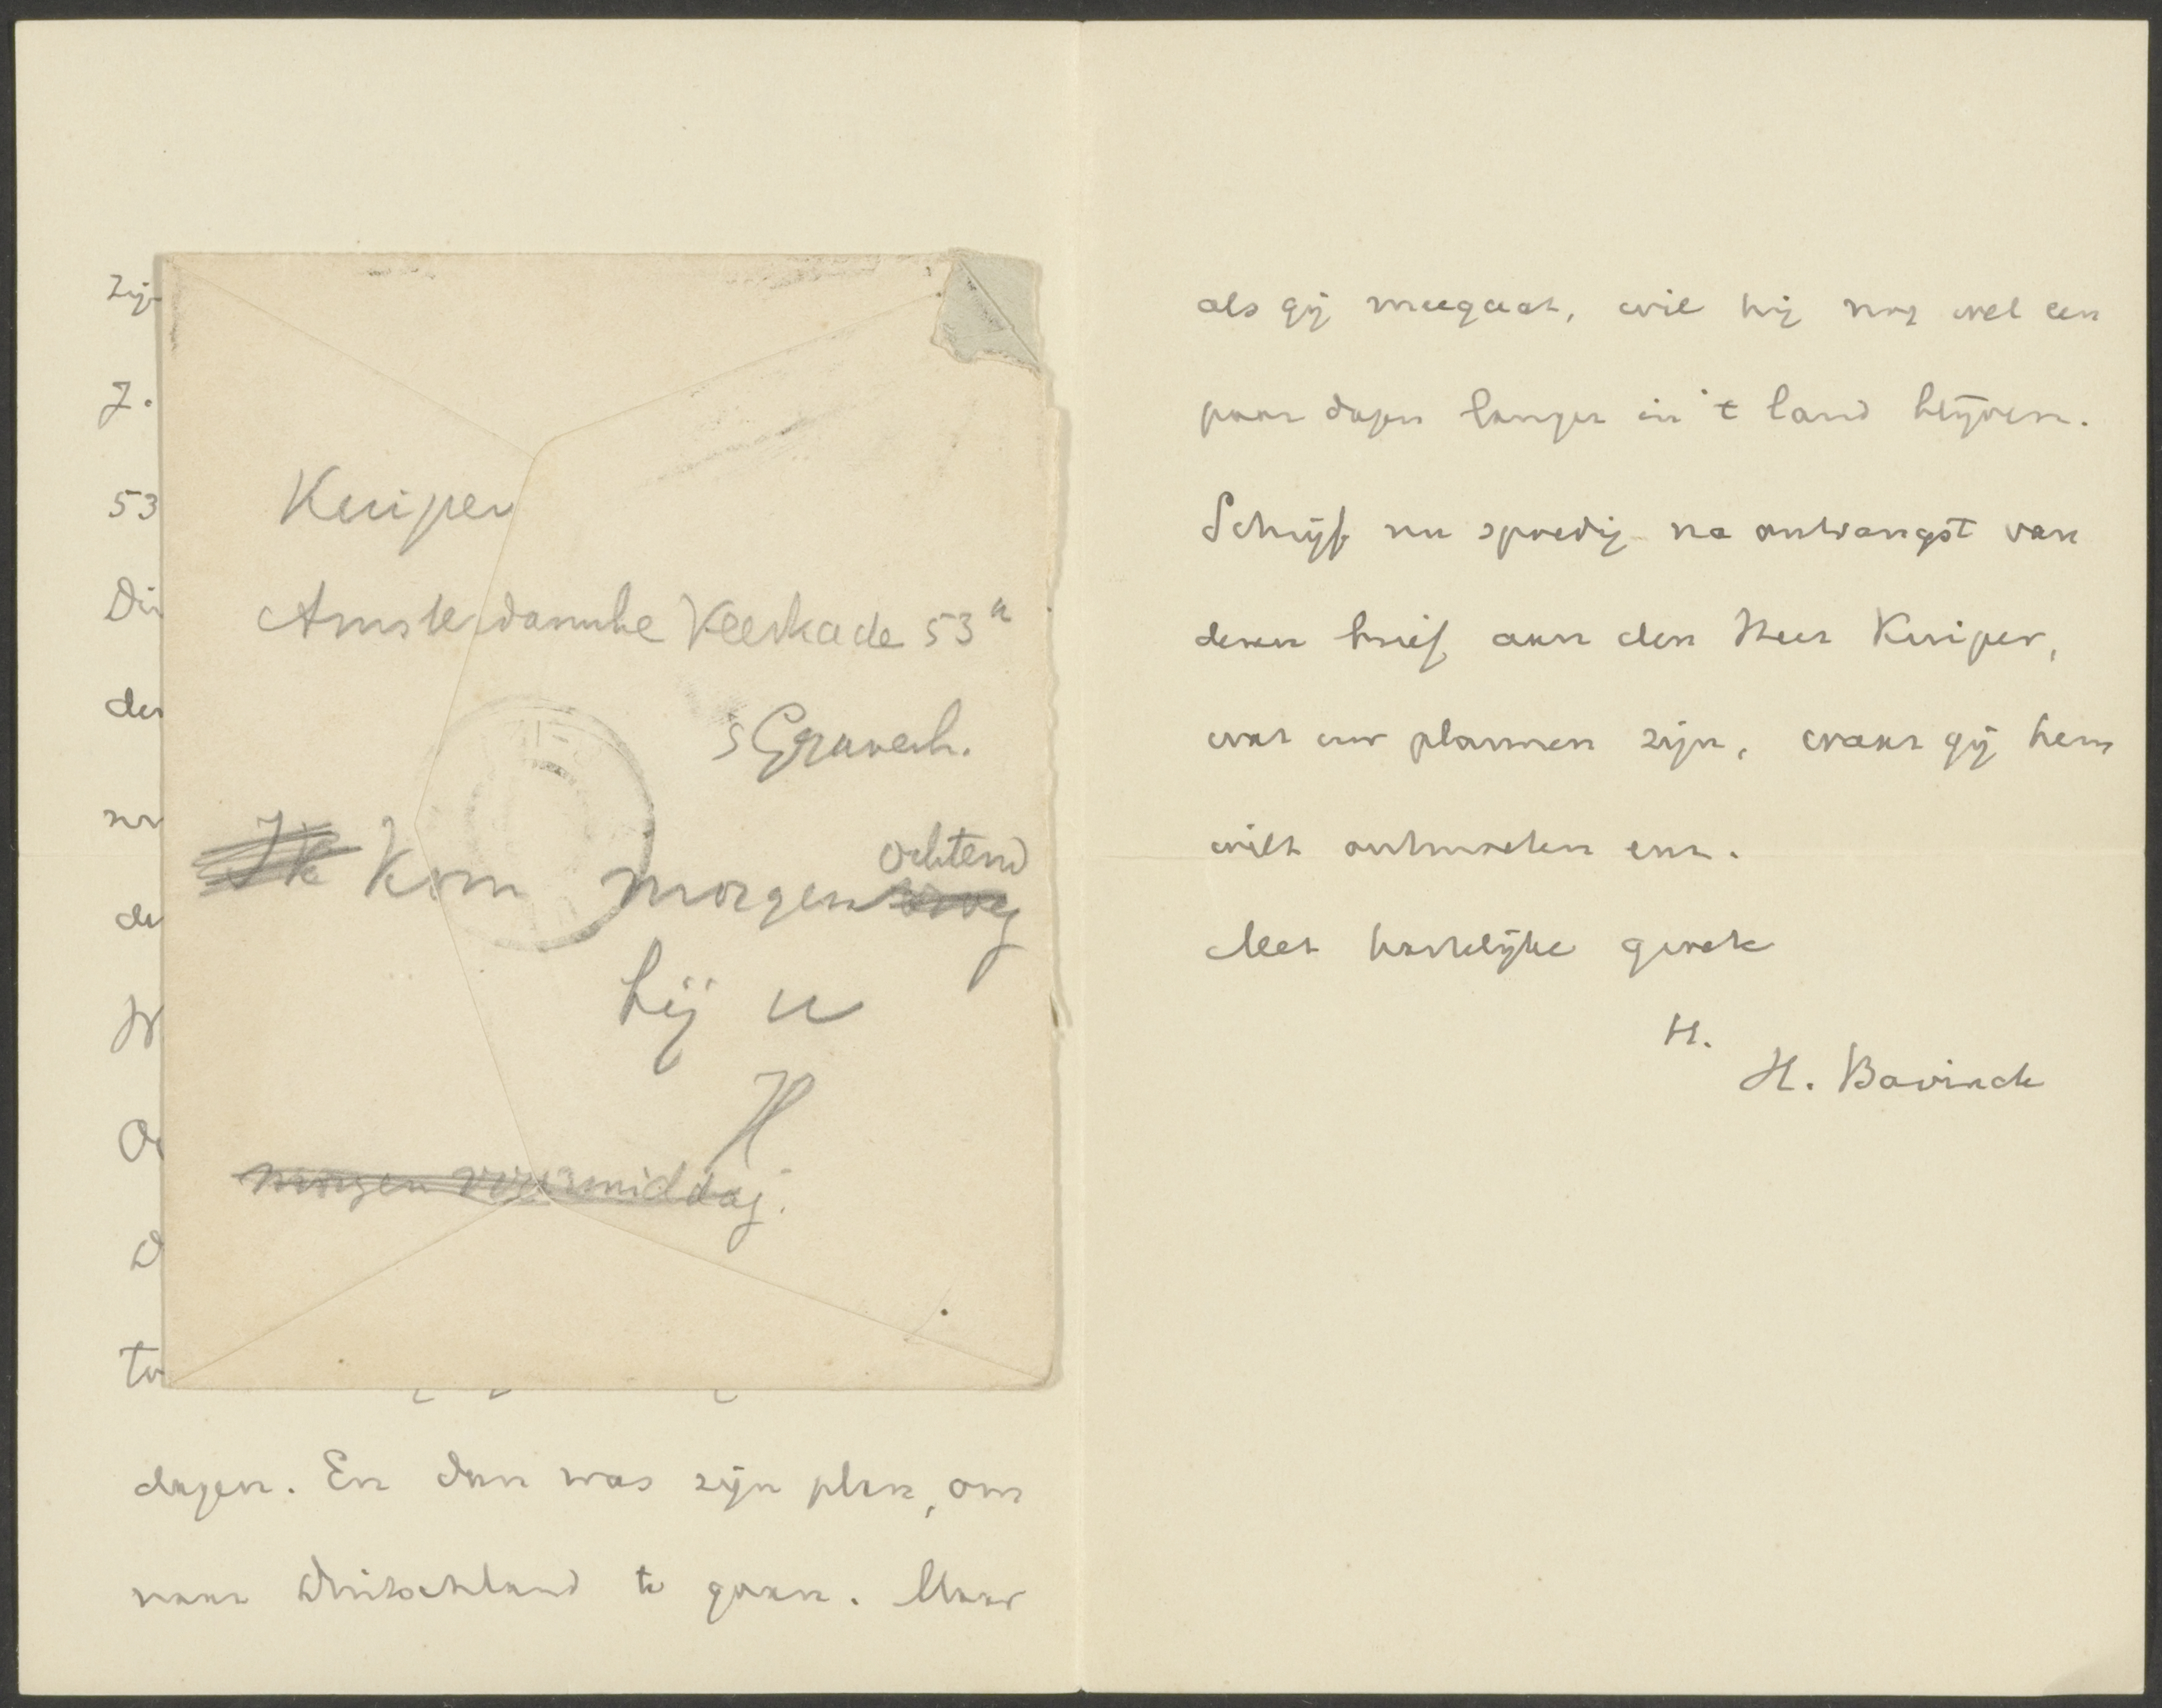 Zij
J.
53
Din
den
nr
de
W
On
D
to
Kuiper
Amsterdamsche Veerkade 53a
's Gravenh.
Ik Kom morgen vroeg
ochtend
bij u
H
morgen voormiddag.
dagen. En dan was zijn plan, om
naar Duitschland te gaan. Maar
als gij meegaat, wil hij nog wel een
paar dagen langer in 't land blijven.
Schrijf nu spoedig na ontvangst van
dezen brief aan den Heer Kuiper,
wat uw plannen zijn, waar gij hem
wilt ontmoeten enz.
Met hartelijke groete
tt.
H. Bavinck